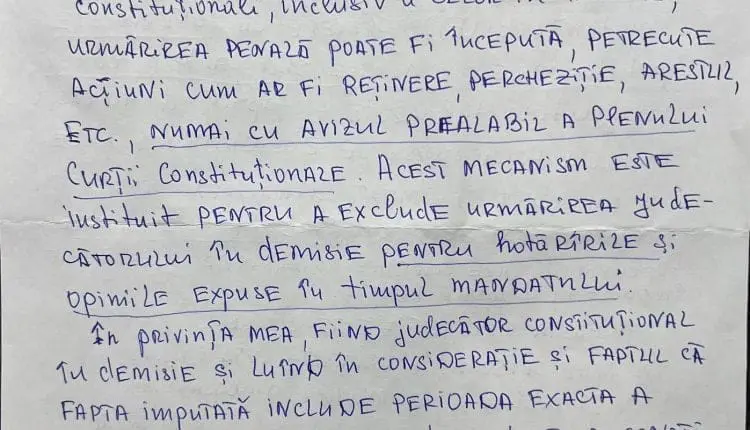 Constituționali, inclusiv a
URMĂRIREA PENALĂ POATE FI ÎNCEPUTĂ, PETRECUTE
ACȚIUNI CUM AR FI REȚINERE, PERCHEZIȚIE, ARESTUL,
ETC., NUMAI CU AVIZUL PREALABIL A PLENULUI
CURȚII CONSTITUȚIONALE. ACEST MECANISM ESTE
INSTITUIT PENTRU A EXCLUDE URMĂRIREA JUDE-
CĂTORULUI ÎN DEMISIE PENTRU HOTĂRÎRILE ȘI
OPINIILE EXPUSE ÎN TIMPUL MANDATULUI.
ÎN PRIVINȚA MEA, FIIND JUDECĂTOR CONSTITUȚIONAL
ÎN DEMISIE ȘI LUÎND ÎN CONSIDERAȚIE ȘI FAPTUL CĂ
FAPTA IMPUTATĂ INCLUDE PERIOADA EXACTA A